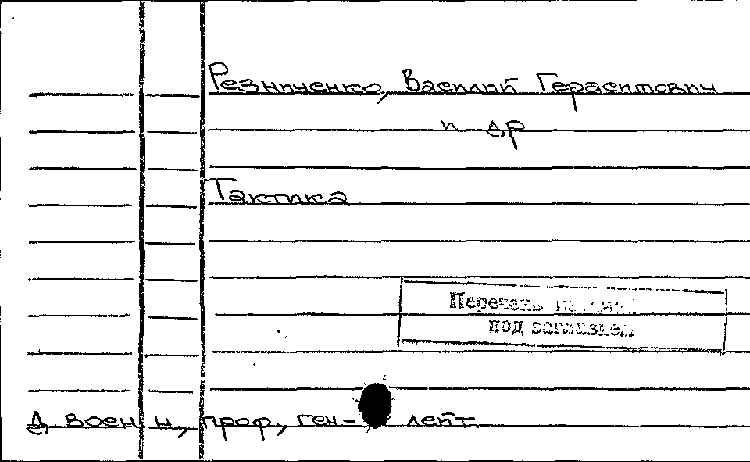 Резниченко, Василий Герасимович
и др
Тактика
Перечень
под заглавием
Д воен н, проф, ген- лейт.